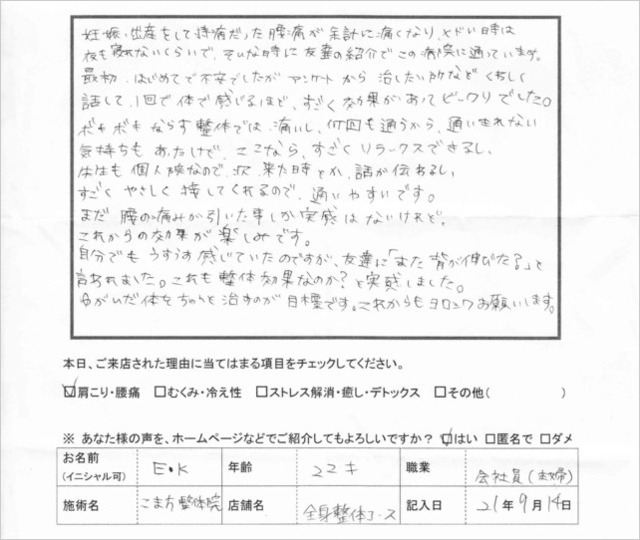 妊娠、出産をして持病だった腰痛が余計に痛くなり、ヒドい時は
夜も寝れないくらいで、そんな時に友達の紹介でこの病院に通っています。
最初、はじめてで不安でしたがアンケートから治したい所など くわしく
話して、1回で体で感じるほど、すごく効果があってビックリでした。
ボキボキならす整体では、痛いし、何回も通うから、通いきれない
気持ちもあったけど、ここなら、すごくリラックスできるし、
先生も個人院なので、次、来た時とか、話が伝わるし、
すごく やさしく 接してくれるので、通いやすいです。
まだ 腰の痛みが引いた事しか実感はないけれど、
これからの効果が楽しみです。
自分でもうすうす感じていたのですが、友達に「また背が伸びた?」と
言われました。これも整体効果なのか?と実感しました。
ゆがんだ体をちゃんと治すのが目標です。これからもヨロシクお願いします。
本日、ご来店された理由に当てはまる項目をチェックしてください。
☑肩こり・腰痛 □むくみ・冷え性 □ストレス解消・癒し・デトックス □その他( )
※ あなた様の声を、ホームページなどでご紹介してもよろしいですか? ☑はい □匿名で □ダメ
お名前 (イニシャル可) E・K 年齢 22才 職業 会社員(主婦)
施術名 こまき整体院 店舗名 全身整体コース 記入日 21年9月14日